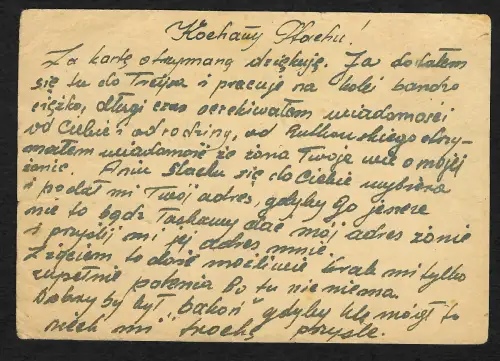 Kochany Stachu!
Za kartę otrzymaną dziękuję. Ja dostałem
się tu do i pracuję na kolei bardzo
ciężko, długi czas oczekiwałem wiadomości
od Ciebie i od rodziny, od otrzy-
małem wiadomość że żona Twoja wie o mojej
żonie. Stachu się do Ciebie wybiera
i podał mi Twój adres, gdyby Go jeszcze
nie to bądź łaskawy dać mój adres żonie
i przyślij mi jej adres mnie.
Z życiem to dość możliwie brak mi tylko
zupełnie palenia bo tu nie niema.
Dobry by był "bakoń" gdyby Klę mógł to
niech mi trochę przyśle.